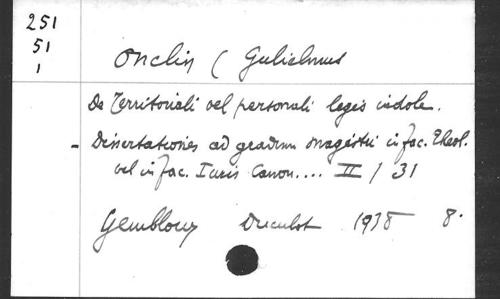 251
51
1
Onclin ( Gulielmus
De Territoriali vel personali legis indole.
- Dissertationes ad gradum magistri in fac. Theol.
vel in fac. Iuris Canon.... II / 31
Gembloux Duculot 1938 8.